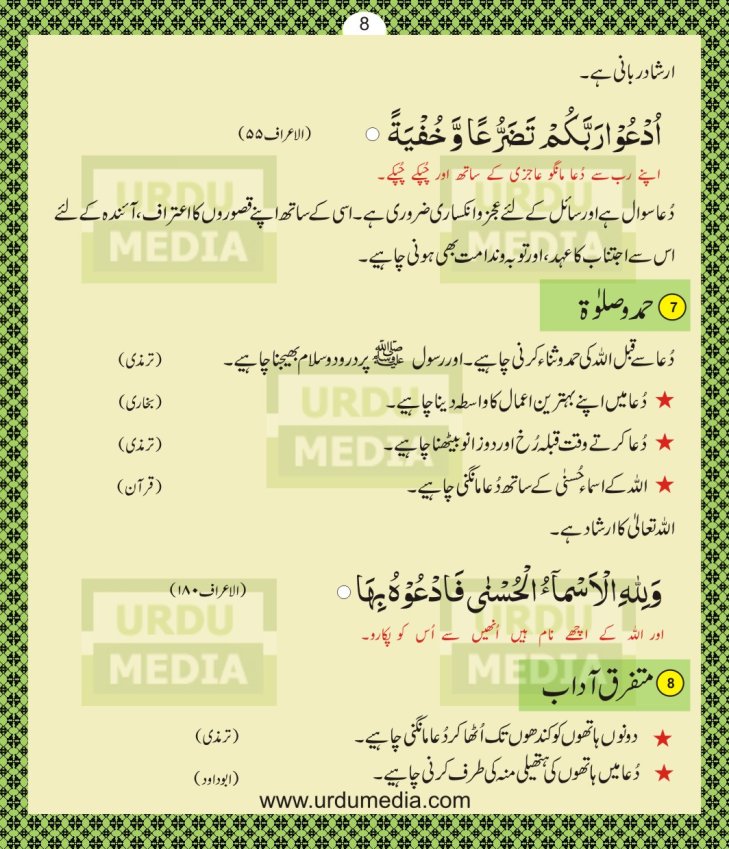 8
ارشاد ربانی ہے۔
اُدْعُوْا رَبَّكُمْ تَضَرُّعًا وَّ خُفْيَةً ○ (الاعراف ۵۵)
اپنے رب سے دُعا مانگو عاجزی کے ساتھ اور چُپکے چُپکے۔
دُعا سوال ہے اور سائل کے لئے عجز و انکساری ضروری ہے۔ اسی کے ساتھ اپنے قصوروں کا اعتراف، آئندہ کے لئے
اس سے اجتناب کا عہد، اور توبہ و ندامت بھی ہونی چاہیے۔
7 حمد و صلوٰة
دُعا سے قبل اللہ کی حمد و ثناء کرنی چاہیے۔ اور رسول ﷺ پر درود و سلام بھیجنا چاہیے۔ (ترمذی)
★ دُعا میں اپنے بہترین اعمال کا واسطہ دینا چاہیے۔ (بخاری)
★ دُعا کرتے وقت قبلہ رُخ اور دوزانو بیٹھنا چاہیے۔ (ترمذی)
★ اللہ کے اسماء حُسنٰی کے ساتھ دُعا مانگنی چاہیے۔ (قرآن)
اللہ تعالیٰ کا ارشاد ہے۔
وَلِلّٰهِ الْاَسْمَآءُ الْحُسْنٰى فَادْعُوْهُ بِهَا ○ (الاعراف ۱۸۰)
اور اللہ کے اچھے نام ہیں اُنھیں سے اُس کو پکارو۔
8 متفرق آداب
★ دونوں ہاتھوں کو کندھوں تک اُٹھا کر دُعا مانگنی چاہیے۔ (ترمذی)
★ دُعا میں ہاتھوں کی ہتھیلی منہ کی طرف کرنی چاہیے۔ (ابوداود)
www.urdumedia.com
URDU MEDIA
URDU MEDIA
URDU MEDIA
URDU MEDIA
URDU MEDIA